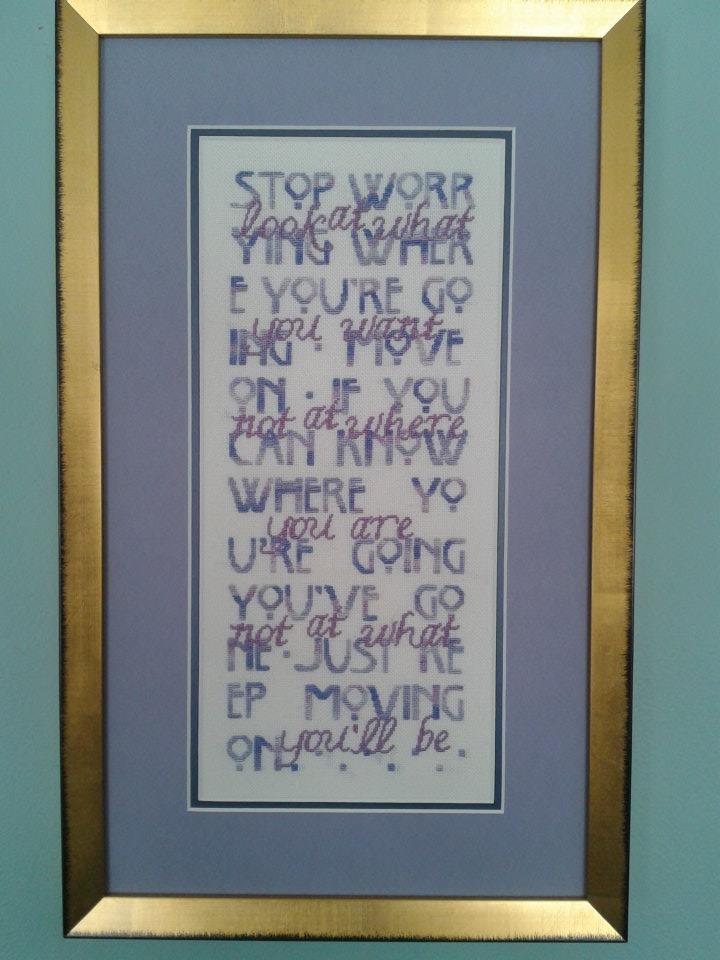 STOP WORR
look at what
YING WHER
E YOU'RE GO
you want
ING · MOVE
ON · IF YOU
not at where
CAN KNOW
WHERE YO
you are
U'RE GOING
YOU'VE GO
not at what
NE · JUST KE
EP MOVING
you'll be
ON . . . . .